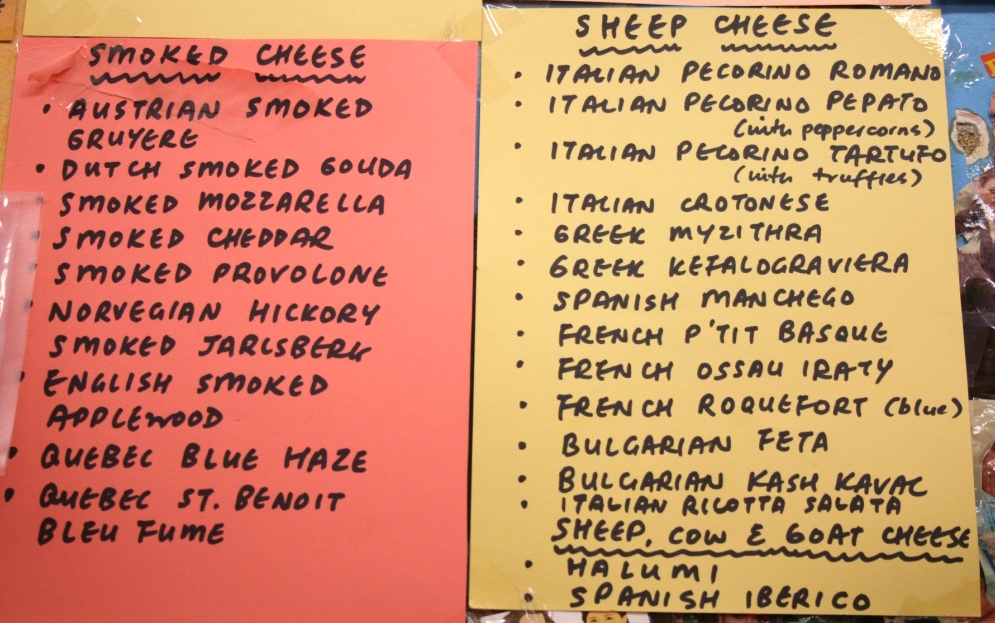 SMOKED CHEESE
• AUSTRIAN SMOKED
GRUYERE
• DUTCH SMOKED GOUDA
SMOKED MOZZARELLA
• SMOKED CHEDDAR
• SMOKED PROVOLONE
• NORVEGIAN HICKORY
SMOKED JARLSBERG
• ENGLISH SMOKED
APPLEWOOD
• QUEBEC BLUE HAZE
• QUEBEC ST. BENOIT
BLEU FUME
SHEEP CHEESE
• ITALIAN PECORINO ROMANO
• ITALIAN PECORINO PEPATO
(with peppercorns)
• ITALIAN PECORINO TARTUFO
(with truffles)
• ITALIAN CROTONESE
• GREEK MYZITHRA
• GREEK KEFALOGRAVIERA
• SPANISH MANCHEGO
• FRENCH P'TIT BASQUE
• FRENCH OSSAU IRATY
• FRENCH ROQUEFORT (blue)
• BULGARIAN FETA
• BULGARIAN KASH KAVAL
• ITALIAN RICOTTA SALATA
SHEEP, COW & GOAT CHEESE
• HALUMI
• SPANISH IBERICO